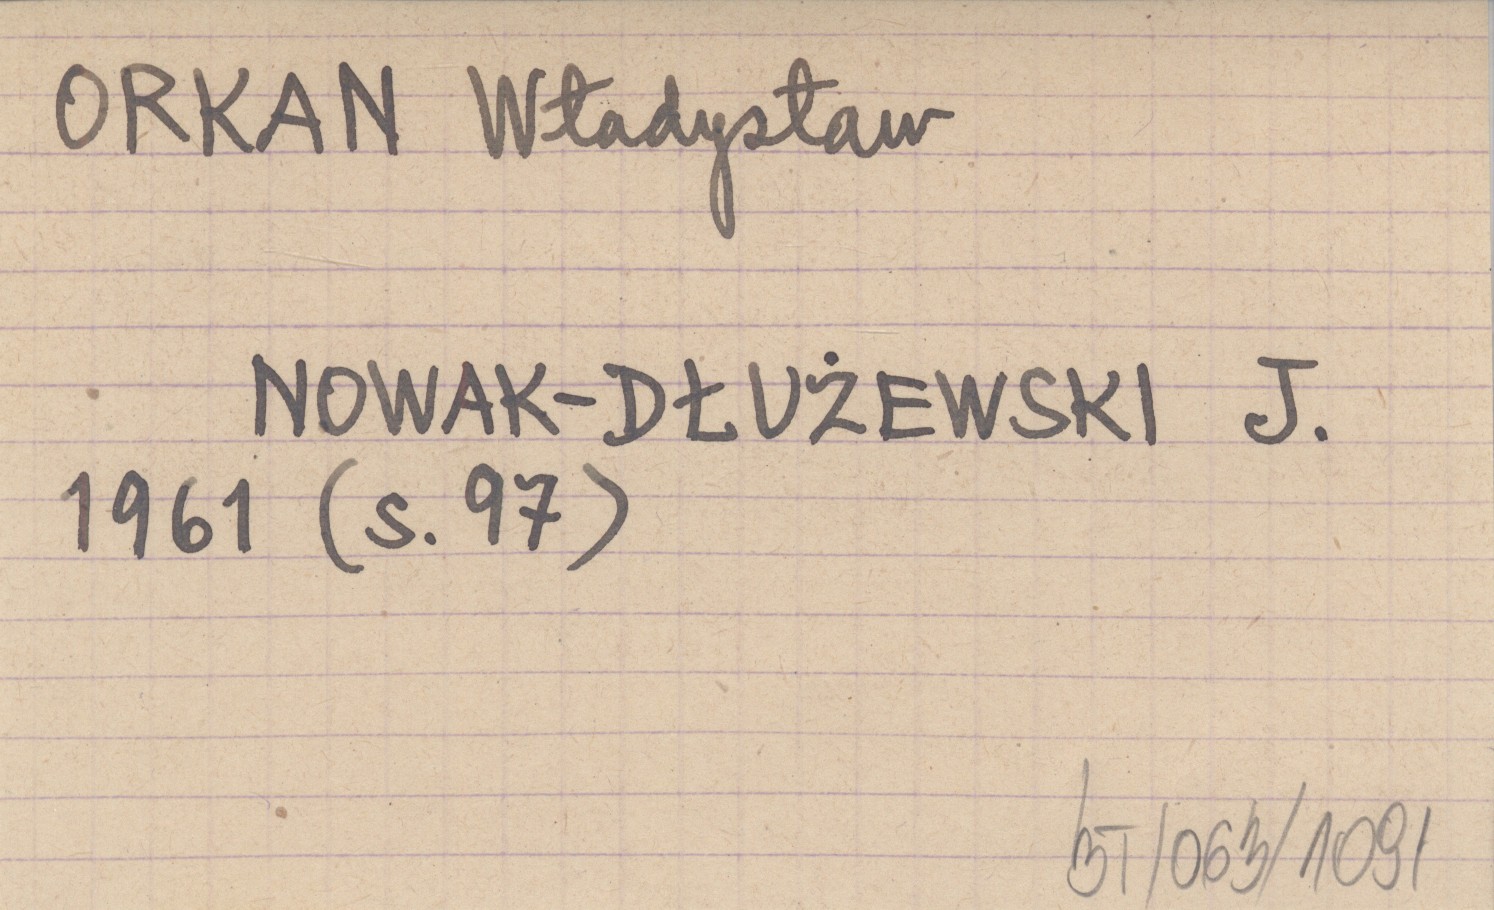 ORKAN Władysław
NOWAK-DŁUŻEWSKI J.
1961 (s. 97)
BT/063/1091